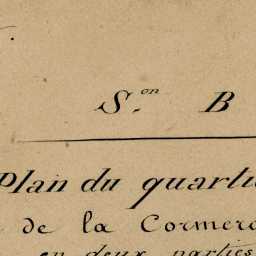 S.on B
Plan du quarti
de la Cormer
en deux parties